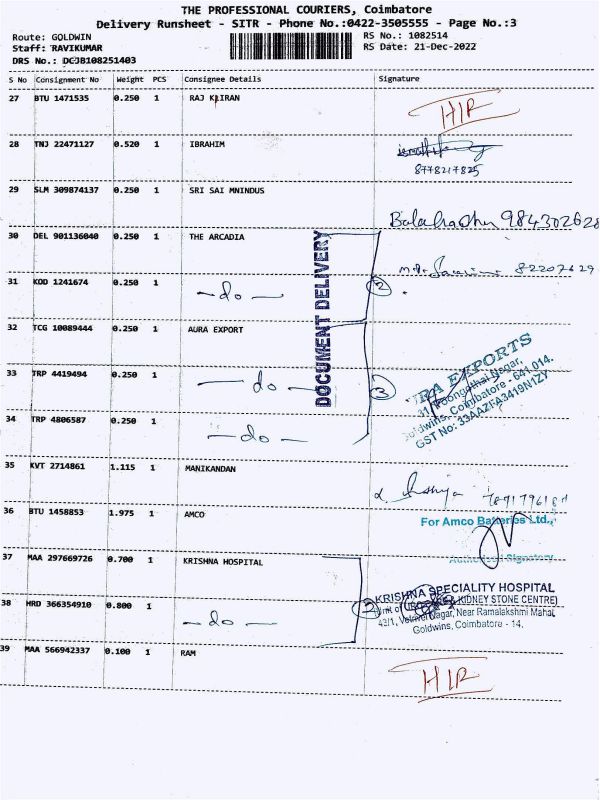 THE PROFESSIONAL COURIERS, Coimbatore
Delivery Runsheet - SITR - Phone No.:0422-3505555 - Page No.:3
Route: GOLDWIN
RS No.: 1082514
Staff: RAVIKUMAR
RS Date: 21-Dec-2022
DRS No.: DCJB108251403
S No Consignment No Weight PCS Consignee Details Signature
27 BTU 1471535 0.250 1 RAJ KIRAN
HIR
28 TNJ 22471127 0.520 1 IBRAHIM
8778217825
29 SLM 309874137 0.250 1 SRI SAI MNINDUS
984302628
30 DEL 901136040 0.250 1 THE ARCADIA
DOCUMENT DELIVERY
31 KOD 1241674 0.250 1 - do -
2
82207629
32 TCG 10089444 0.250 1 AURA EXPORT
33 TRP 4419494 0.250 1 - do -
3
34 TRP 4806587 0.250 1 - do -
EXPORTS
Nagar,
Coimbatore - 641 014.
GST No: 33AAZFA3419N1ZY
35 KVT 2714861 1.115 1 MANIKANDAN
36 BTU 1458853 1.975 1 AMCO
For Amco Batteries Ltd.,
Authorised Signatory
37 MAA 297669726 0.700 1 KRISHNA HOSPITAL
38 HRD 366354910 0.800 1 - do -
KRISHNA SPECIALITY HOSPITAL
KIDNEY STONE CENTRE)
42/1, Nagar, Near Ramalakshmi Mahal,
Goldwins, Coimbatore - 14.
39 MAA 566942337 0.100 1 RAM
HIR